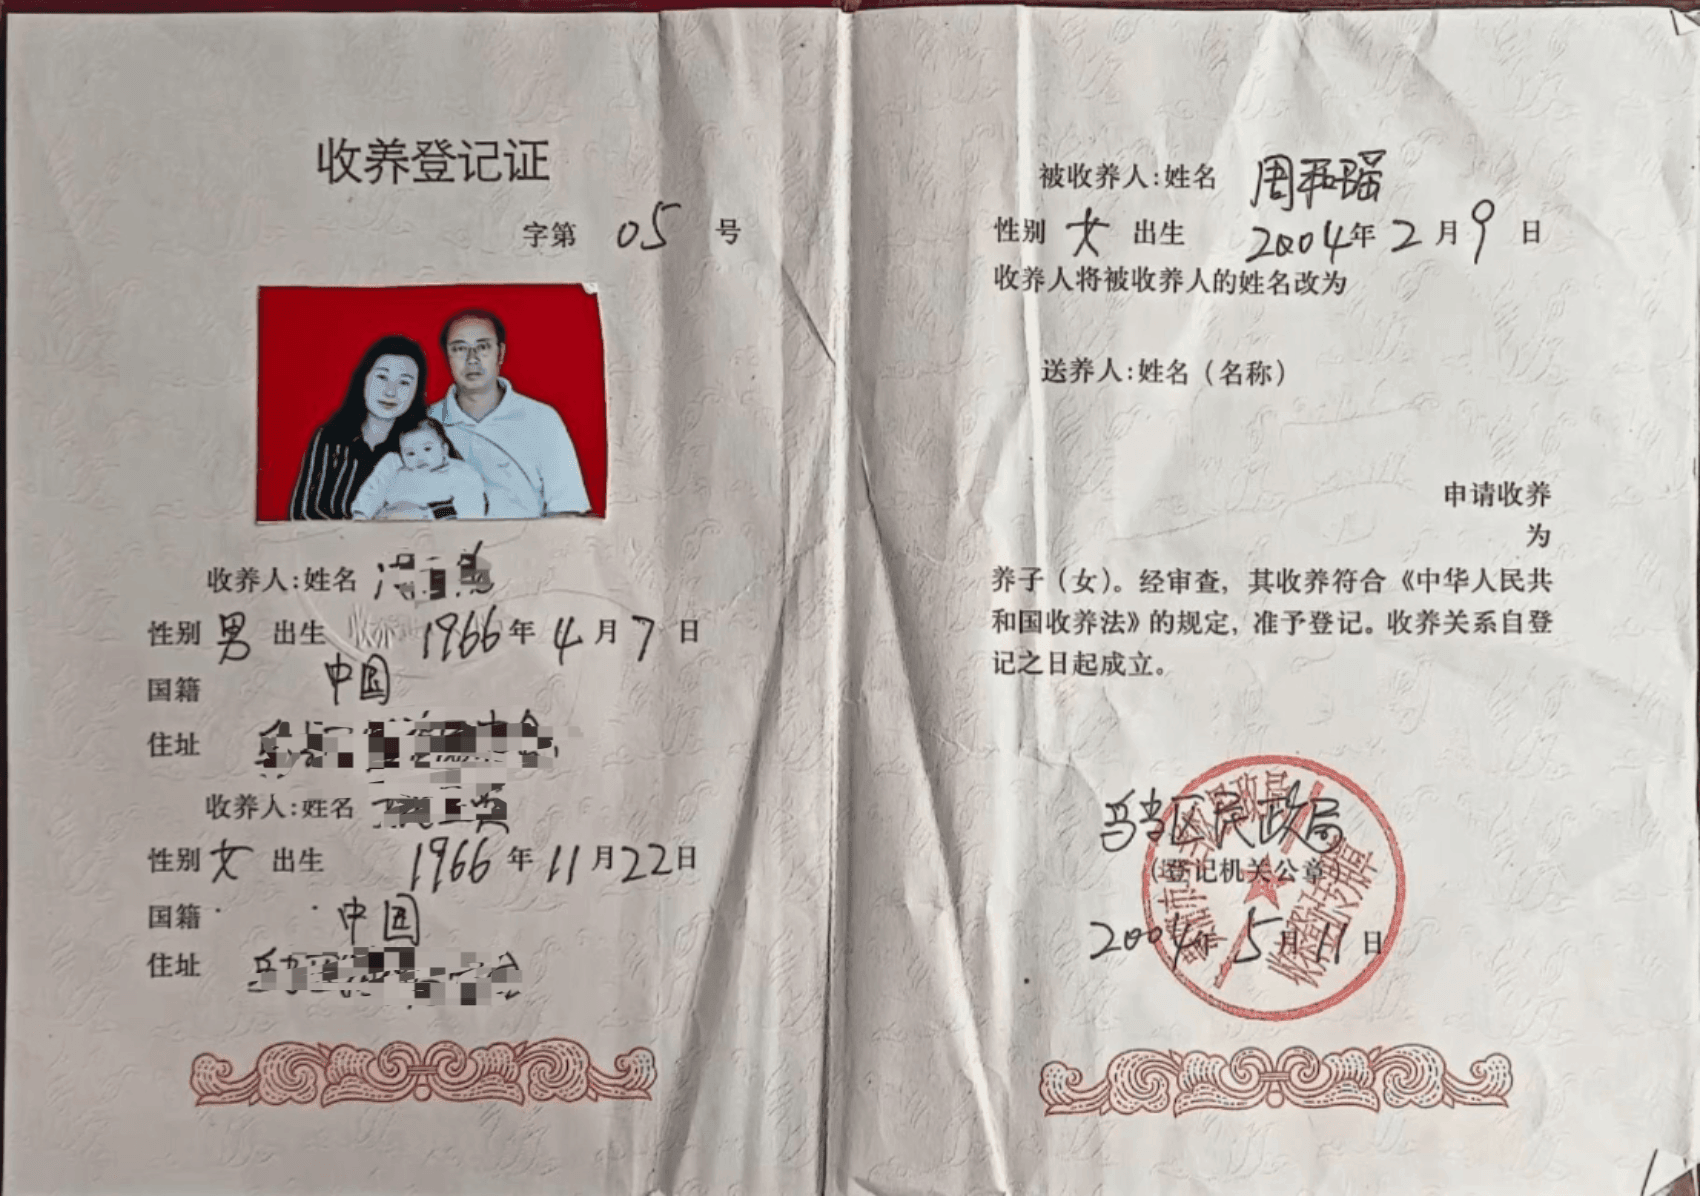 收养登记证
字第 05 号
收养人:姓名
性别 男 出生 1966年4月7日
国籍 中国
住址
收养人:姓名
性别 女 出生 1966年11月22日
国籍 中国
住址
被收养人:姓名 周
性别 女 出生 2004年2月9日
收养人将被收养人的姓名改为
送养人:姓名(名称)
申请收养
为
养子(女)。经审查,其收养符合《中华人民共
和国收养法》的规定,准予登记。收养关系自登
记之日起成立。
乌当区民政局
(登记机关公章)
2004年5月11日
收养登记专用章